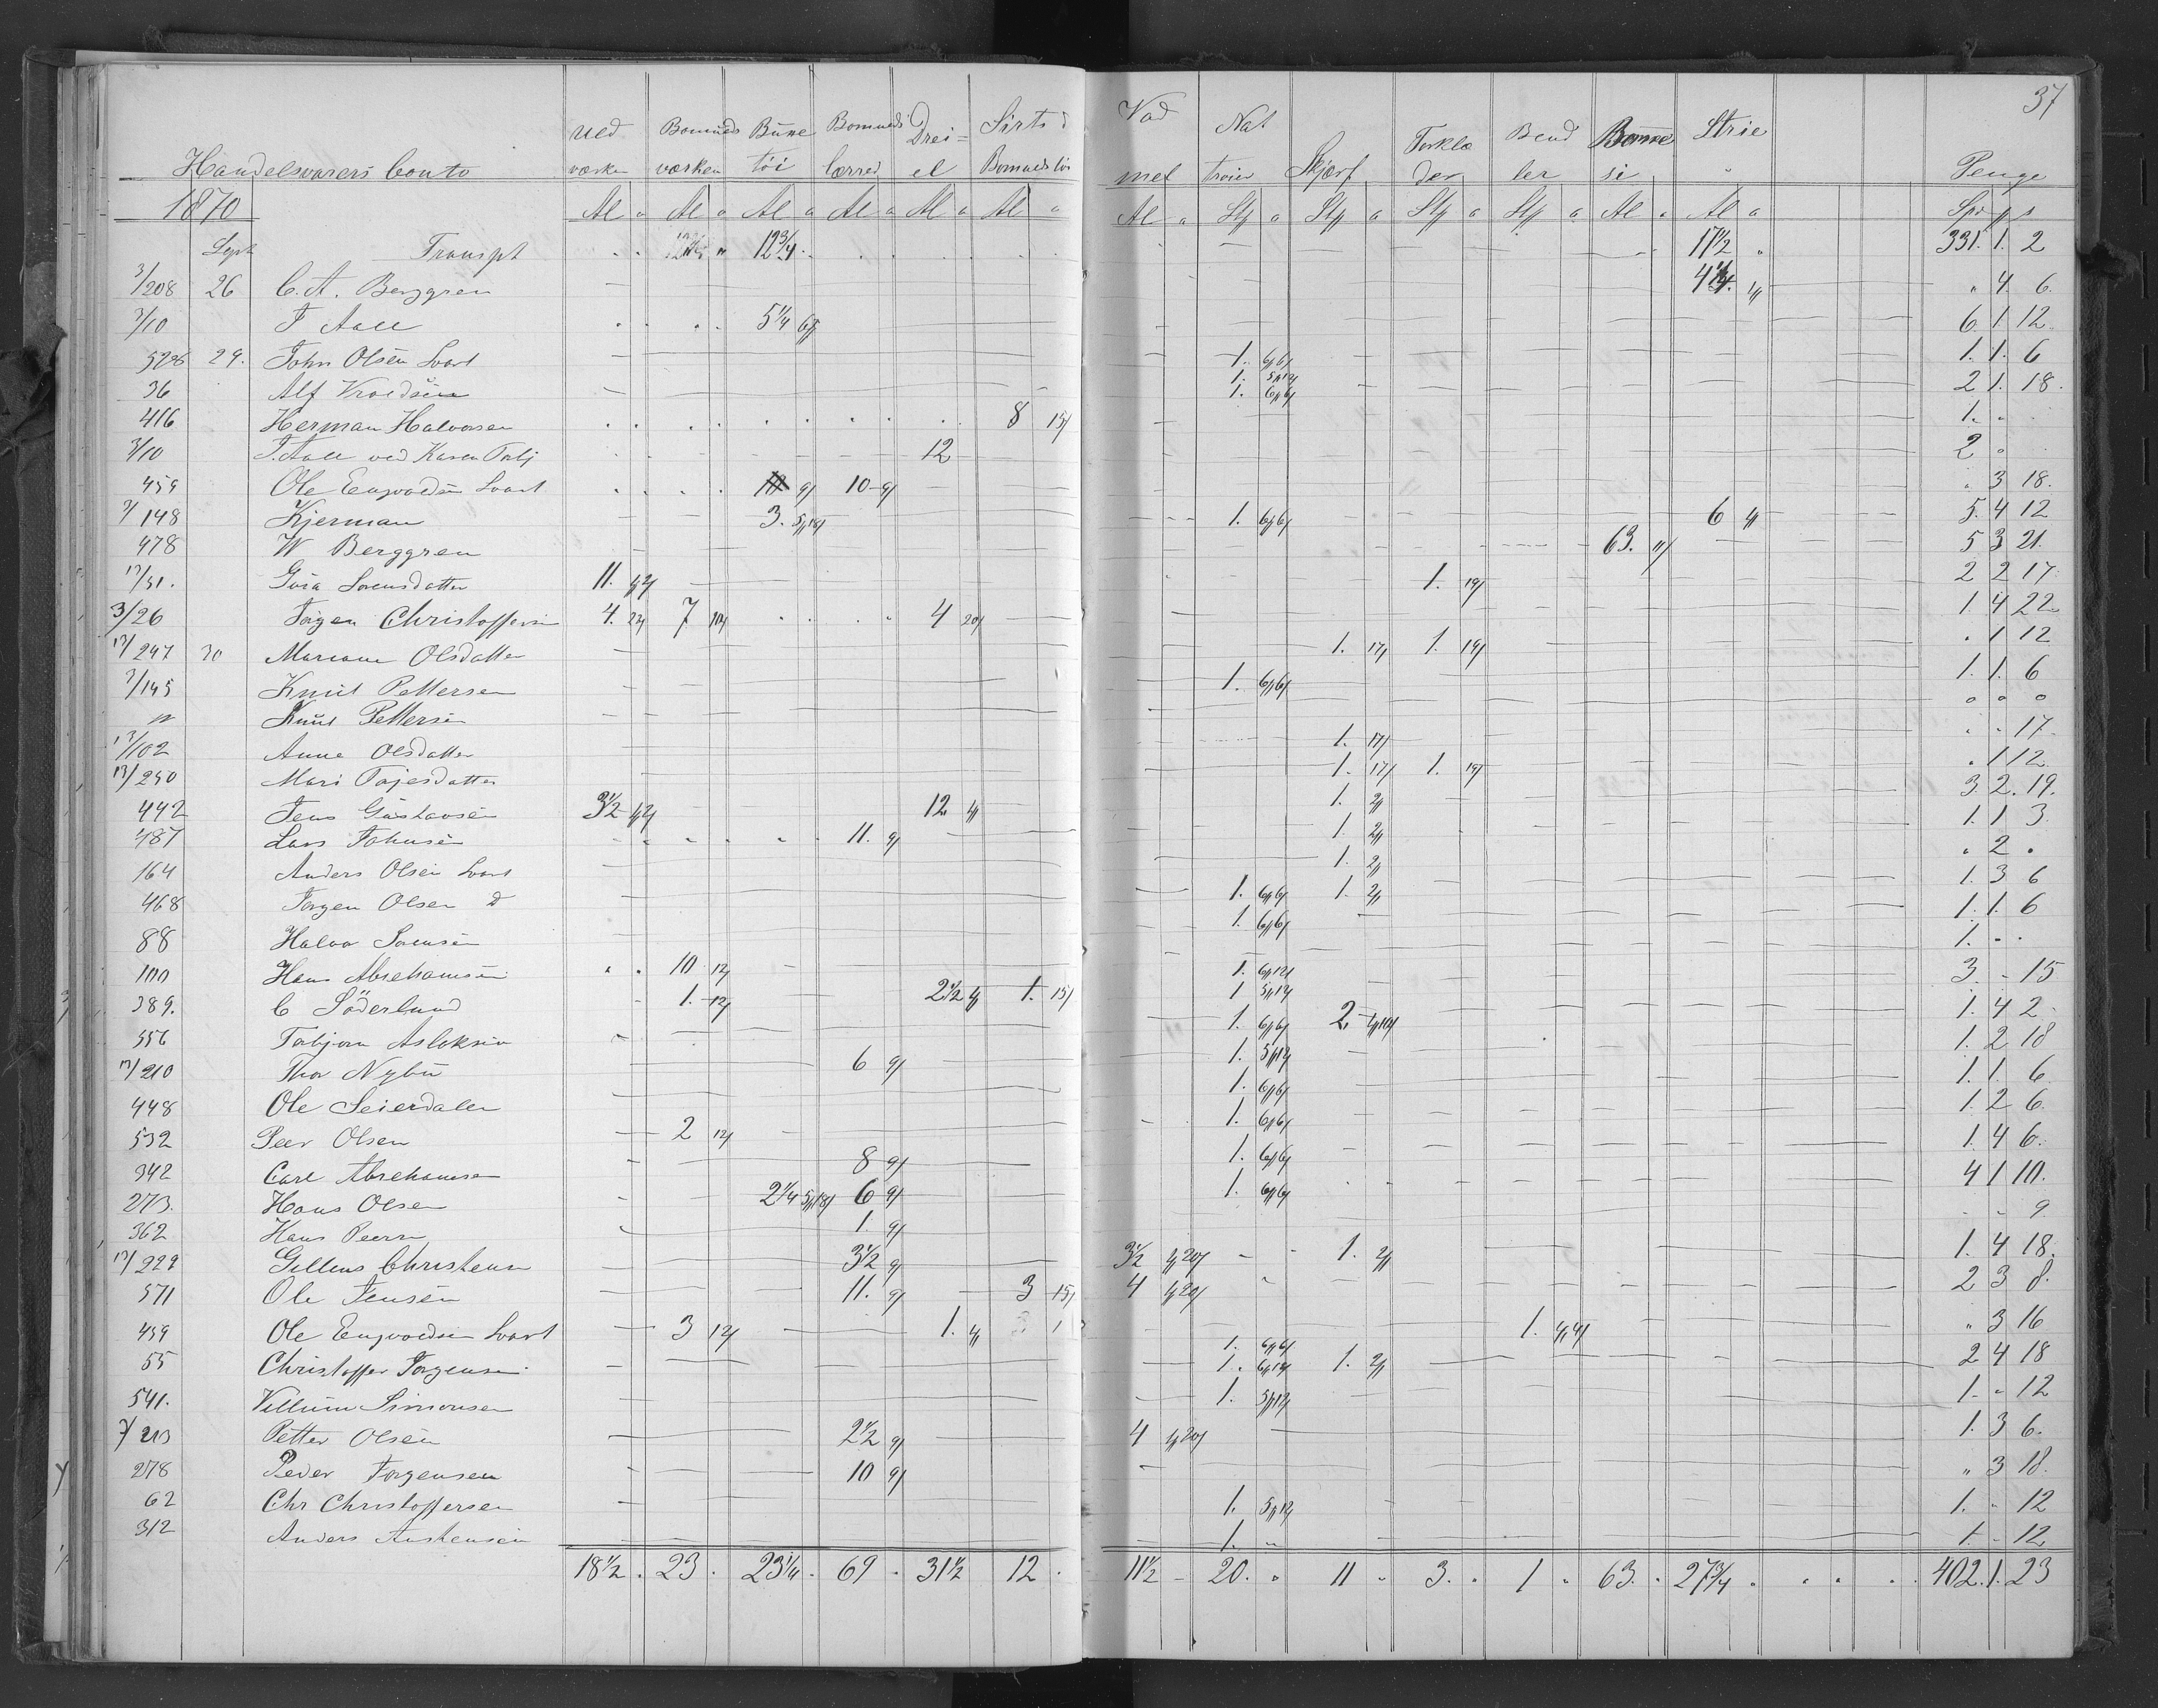 37
Handelsvarers Conto
Uld værken Bomulds værken Buxe töi Bomulds lærred Drei= el Sirts Bomulds töi Vad mel Nat troier Skjerf Torklæ der Bend ler Bomme si Strie Penge
1870 Al a Al a Al a Al a Al a Al a Al a Stk a Stk a Stk a Stk a Al a Al a Spd
Sept Transpt 12 3/4 17 1/2 331. 1. 2
3/208 26 C. A. Berggren 4 " 4. 6.
3/10 J Aall 5 1/4 6 1. 12
528 29. John Olsen Svart 1. 6/6 1. 1. 6
36 Alf 1. 5/12 1. 6/6 2 1. 18.
416 Herman Halvorsen 8 15/ 1. "
3/10 J. Aall ved Karen Torbj 12 2
459 Ole Engvoldsen Svart 9/ 10 - 9/ " 3 18.
3/148 Kjerman 3. 5/18/ 1. 6/6/ 6 4/ 5. 4 12
478 W Berggren 63. 5 3 21.
13/51. Sorensdatter 11. 1. 19/ 2 2 17
3/26 Jörgen Christoffersen 4. 7 12/ 4 20/ 1 4 22
13/247 30 Mariane Olsdatter 1. 17/ 1. 19/ . 1 12
3/145 Knut Pettersen 1. 6/6/ 1. 1. 6
" Knut Pettersen " " "
13/102 Anne Olsdatter 1. 17/ . . 17.
13/250 Mari Tajesdatter 1. 17/ 1. 19/ . 1 12
442 Jens Gustavsen 3 1/2 12 4/ 1. 2/ 3. 2. 19.
487 Lars Johnsen 11. 9/ 1. 2/ 1. 1 3.
164 Anders Olsen Svart 1. 2/ " 2 "
468 Jörgen Olsen D 1. 6/6/ 1. 2/ 1. 3 6
88 Halvor 1. 6/6/ 1. 1. 6
100 Hans Abrehamsen 10 12/ 1. -
389. C Söderlund 1. 12/ 2 1/2 4/ 1. 15/ 1. 6/12/ 1 5/12 3 - 15
556 Torbjörn Asloksen 1. 6/6/ 2. 1. 4 2
13/210 Thor Nybu 6 9/ 1. 5/12 1. 2 18
448 Ole Seierdalen 1. 6/6/ 1. 1. 6
532 Peer Olsen 2 12/ 1. 6/6/ 1. 2 6
342 Carl Abrehamsen 8 9/ 1. 6/6/ 1. 4 6
273. Hans Olsen 2 1/4 5/18/ 6 9/ 1. 6/6/ 4 1 10.
362 Hans Peersen 1. 9/ - - 9.
13/229 Gullens Christensen 3 1/2 9/ 3 1/2 1/20/ 1. 2/ 1. 4 18.
571 Ole Jensen 11. 9/ 3 15/ 4 1/20/ 2 3 8.
459 Ole Engvoldsen Svart 3 12/ 1. 4/ 1. " 3 16
55 Christoffer Jörgensen 1. 6/6/ 1. 6/12/ 1. 2/ 2 4 18
541. Villum Simonsen 1. 5/12/ 1. " 12
3/213 Petter Olsen 2 1/2 9/ 4 1/20/ 1. 3 6.
278 Peder Jörgensen 10 9/ " 3 18.
62 Chr Christoffersen 1. 5/12 1. " 12
312 Anders Austensen 1. " 1. - 12
18 1/2 . 23 . 23 1/4 . 69 . 31 1/2 12 . 11 1/2 - 20. " 11 " 3. . 1 " 63. . 27 3/4 . 402. 1. 23